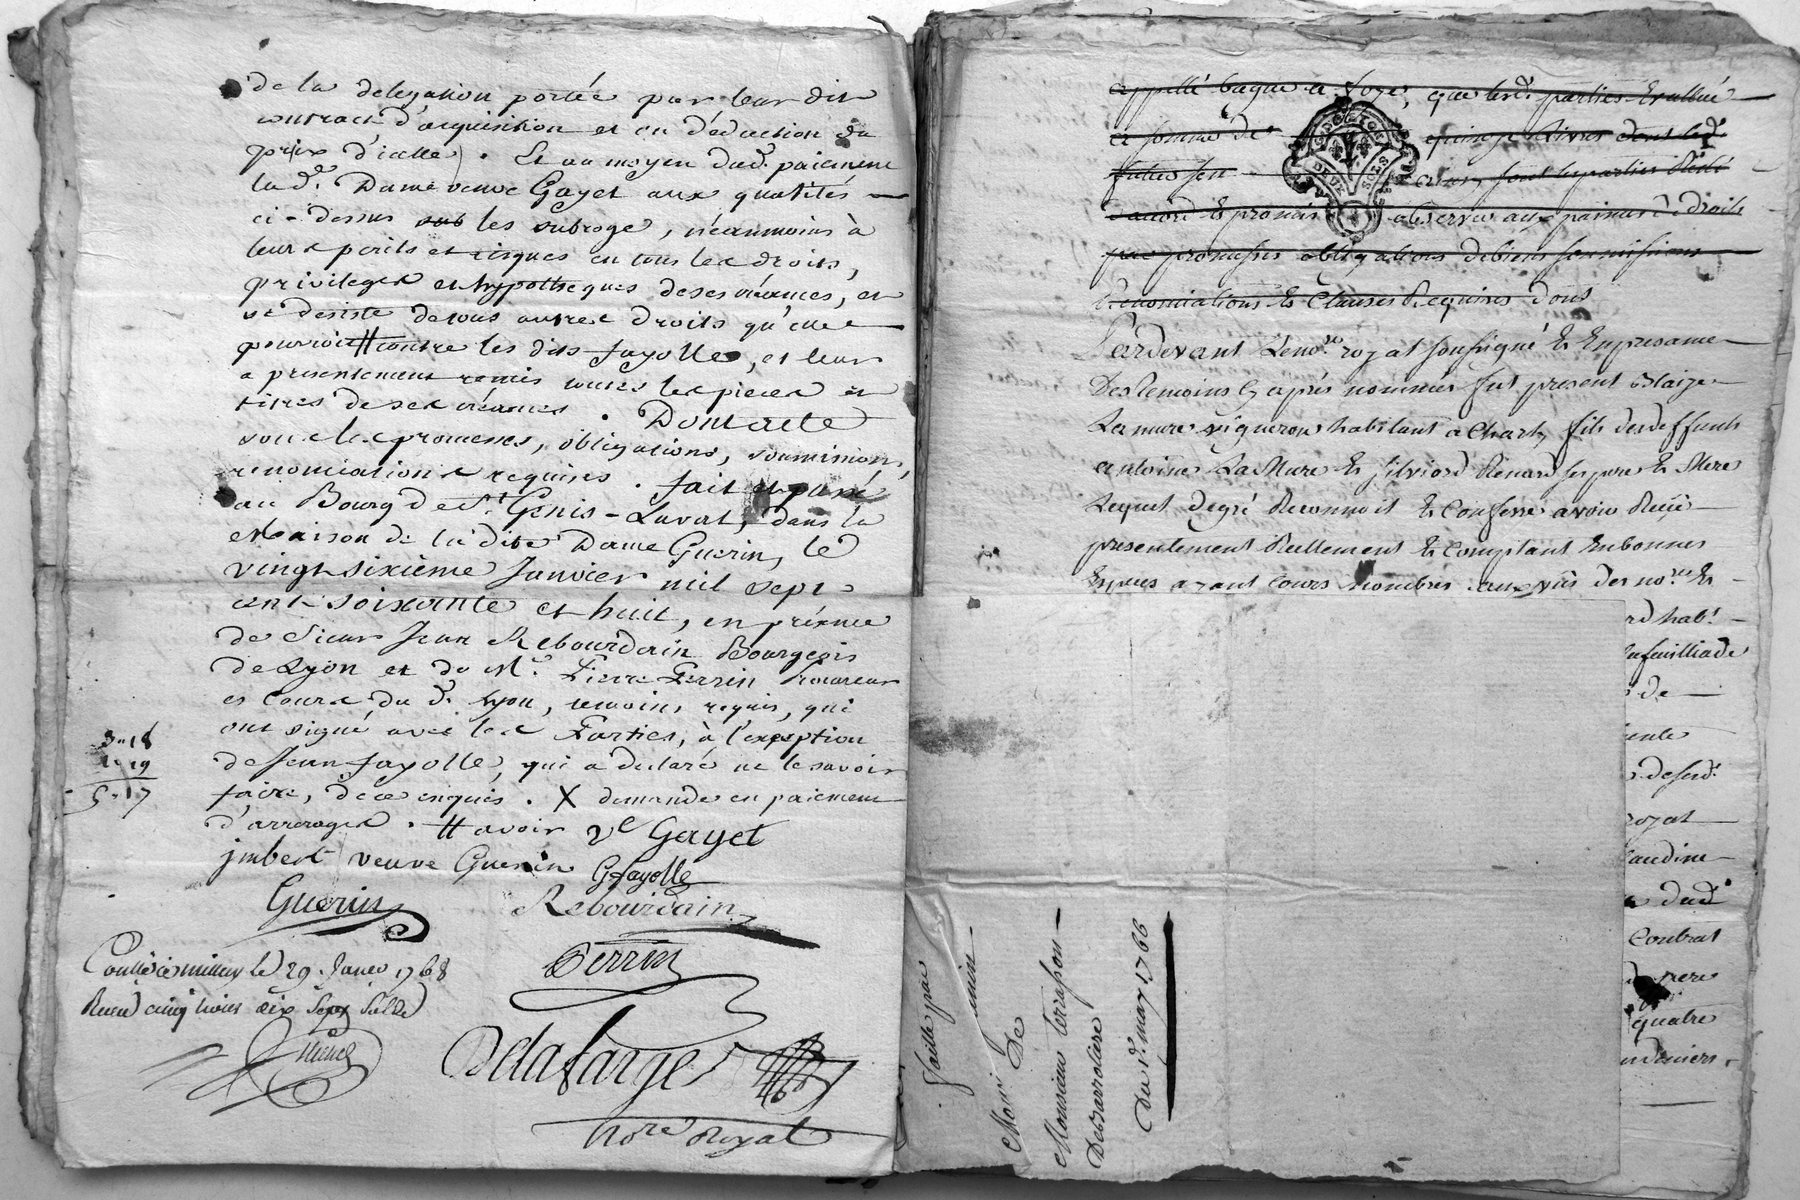 de la delegation portée par leur dit
contract d'acquisition et en deduction du
prix d'icelle). Et au moyen dud. paiement
lad.e Dame veuve Gayet aux qualités
ci-dessus les subroge, néanmoins à
leurs perils et risques en tous les droits,
privileges et hypotheques de ses créances, et
se desiste de tous autres droits qu'elle
pourroit # contre les dits fayolle, et leur
a presentement remis toutes les pieces et
titres de ses créances. Dont acte
sous les promesses, obligations, soumissions,
renonciations requises. fait et passé
au Bourg de St Genis-Laval, dans la
Maison de la dite Dame Guerin, le
vingt sixième Janvier mil sept
cent soixante et huit, en présence
de Sieur Jean Rebourdain Bourgeois
de Lyon et de Me. Pierre Perrin Procureur
es cours du d. Lyon, temoins requis, qui
ont signé avec les Parties, à l'exception
de Jean fayolle, qui a déclaré ne le savoir
faire, de ce enquis. X demande en paiement
d'arrerages. # avoir ve Gayet
jmbert veuve Guerin Gfayolle
Guerin Rebourdain
3-18
1-19
5-17
Perrin
Conllé à millery le 29 Janer 1768
Receu cinq livres dix sept sols
Delafarge
Nore Royal
appellé bague et joye, que lesd. parties Evallué
a somme de quinze Livres
DEUX SOLS
d'accord Et promis observer aux peines de droits
par promesses obligations de biens soumissions
Renonciations Et Clauses Requises dont
Pardevant Le nore royal soussigné Et En presance
Des temoins Cy après nommés fut present Blaize
Lamure vigneron habitant a Charly fils des deffunts
antoine LaMure Et Renard ses pere Et Mere
Lequel de gré Reconnoit Et Confesse avoir Reçu
presentement Réellement Et Comptant En bonnes
Especes ayant Cours nombrés aux vûs des nores Et
rd habt
feuilliade
de
royal
audine
dud.
Contrat
pere
quatre
deniers.
Taille par
Monsieur terrasson
Debarroliere
Du 1er may 1766